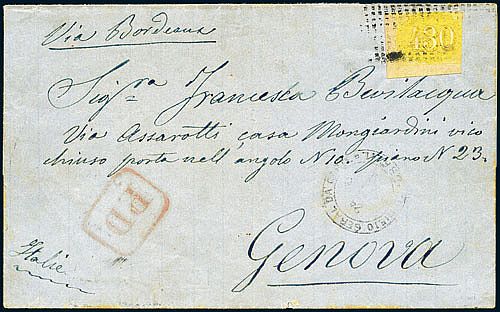 Via Bordeaux
430
Sigra Francesca Bevilacqua
Via Assarotti casa Mongiardini vico
chiuso porta nell'angolo N 10. piano N 23.
P.D.
Genova
Italie